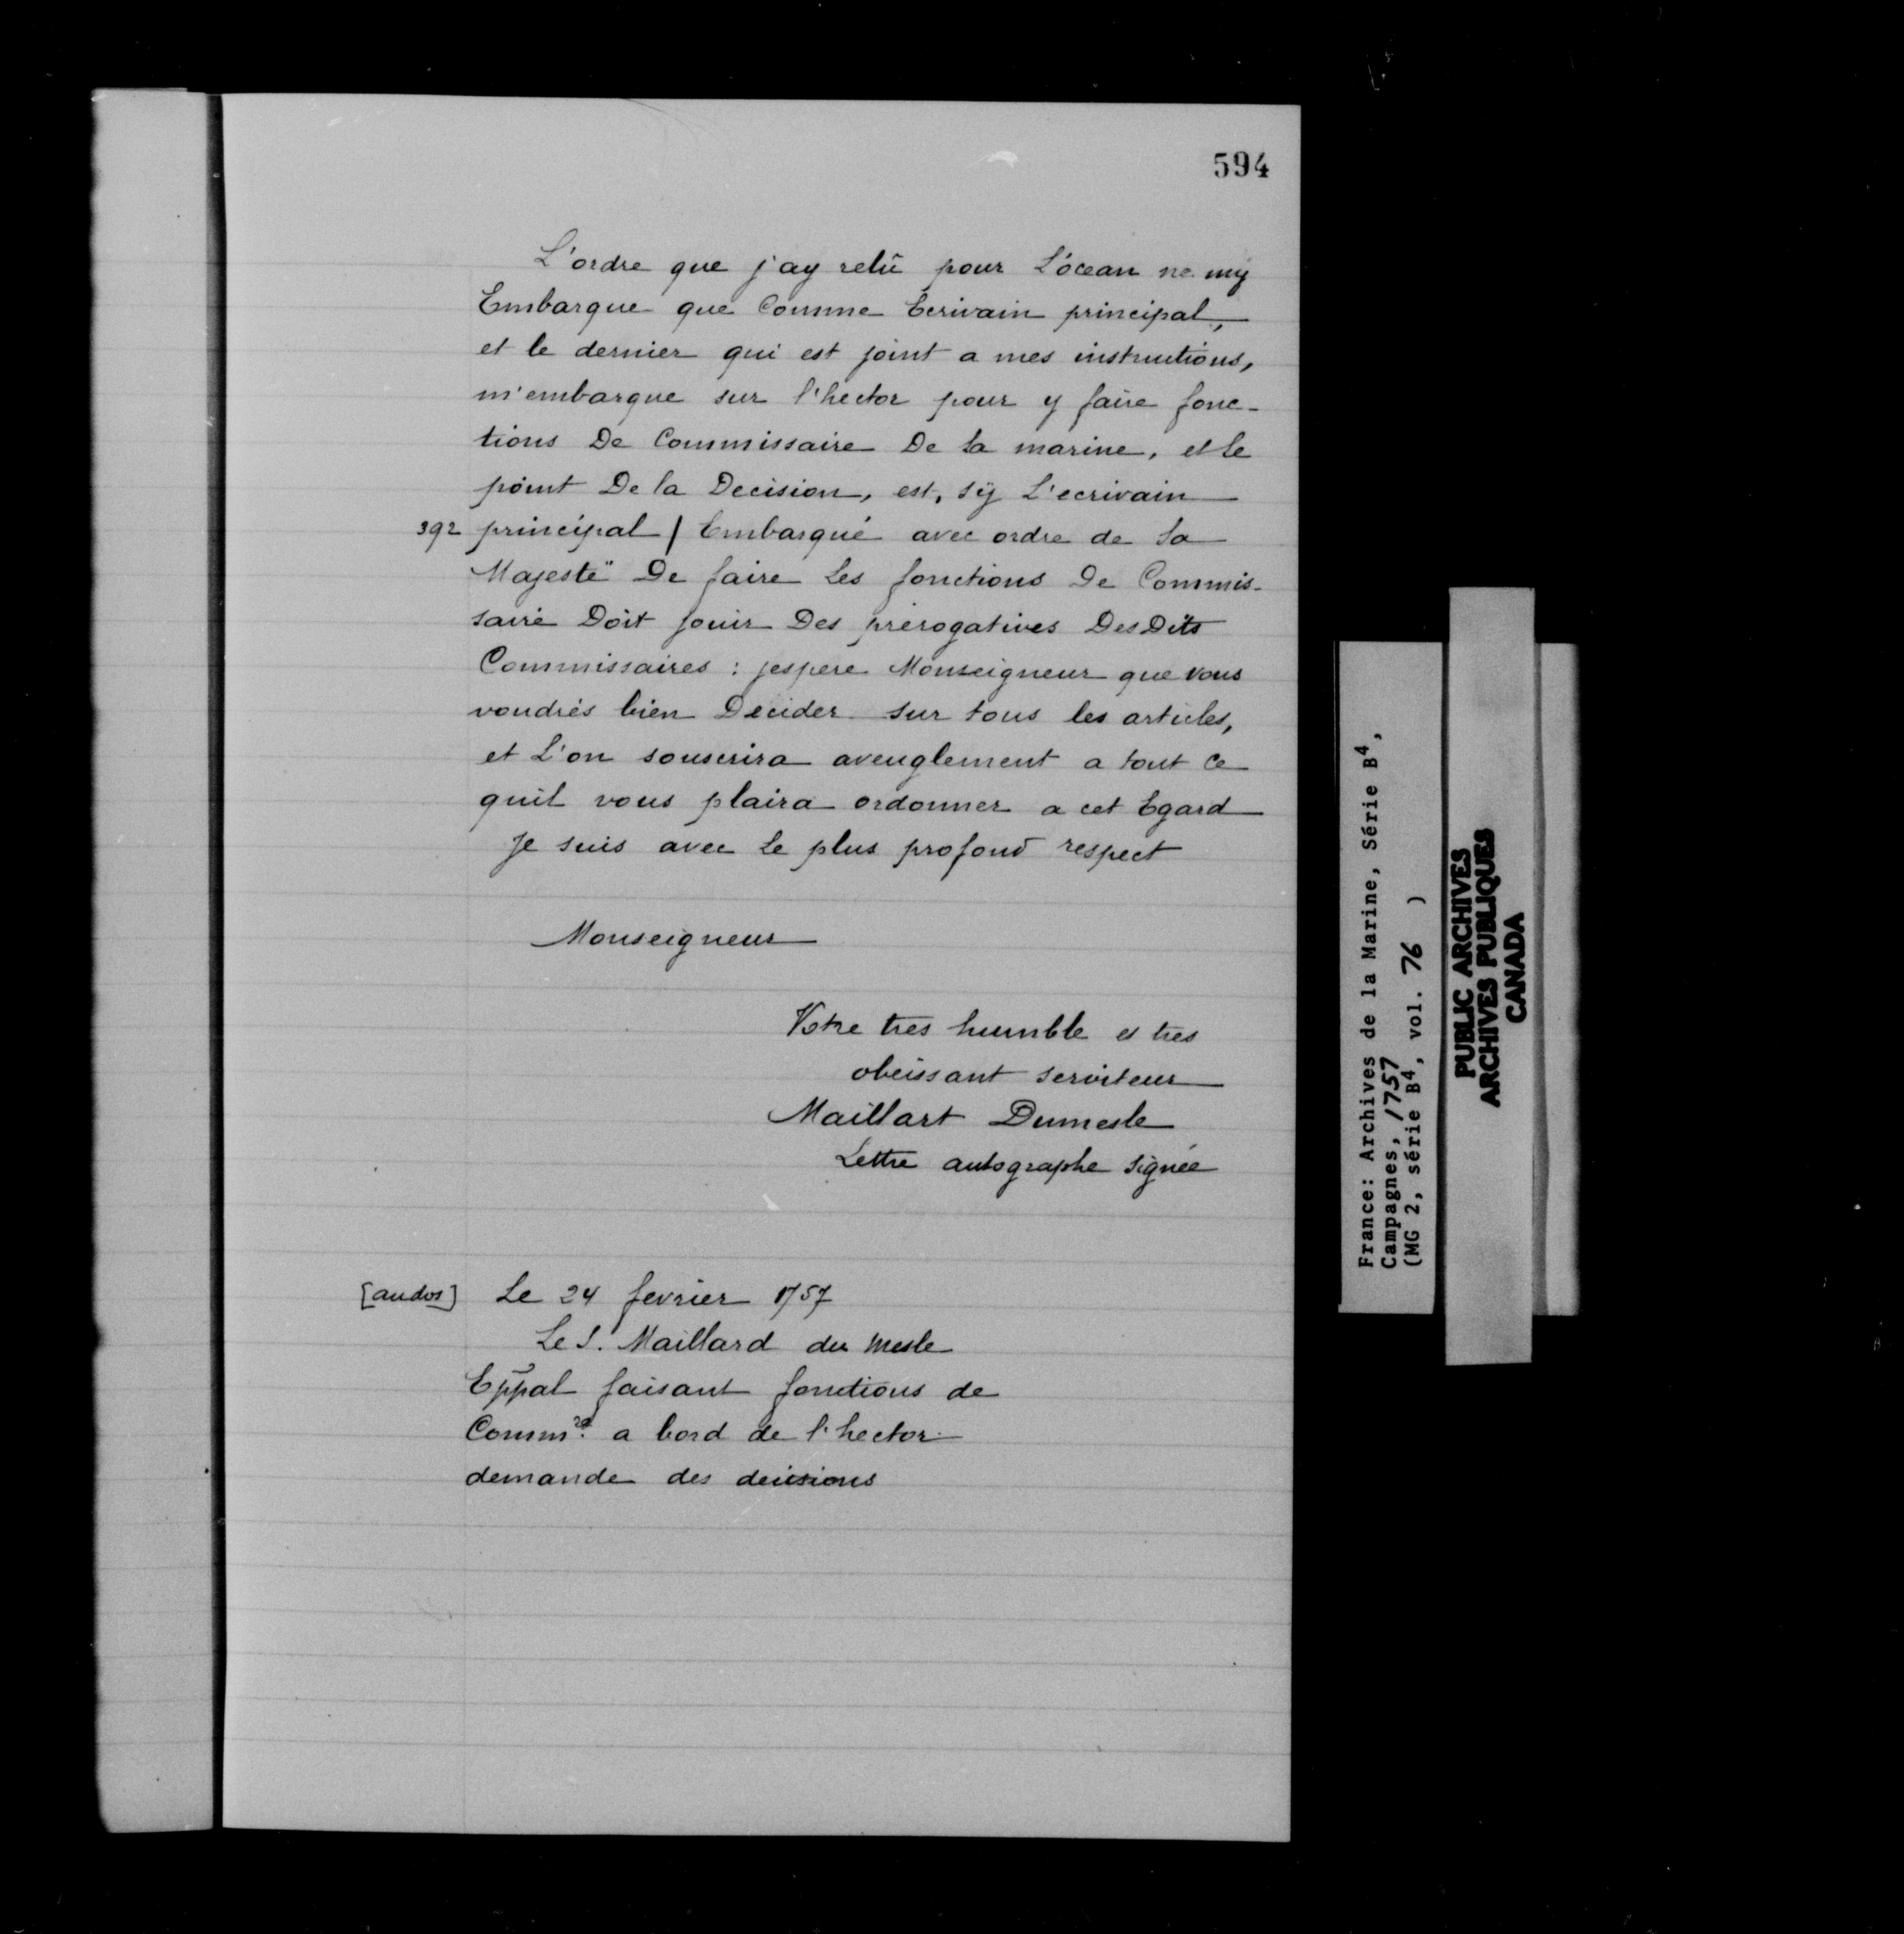 594
L'ordre que j'ay relû pour L'ócean ne my
Embarque que Comme Ecrivain principal,
et le dernier qui est joint a mes instructions,
m'embarque sur l'hector pour y faire fonc-
tions De Commissaire De la marine, et le
point De la Decision, est, sÿ L'ecrivain
392 principal / Embarqué avec ordre de Sa
Majesté De faire Les fonctions De Commis-
saire Doit jouir Des prerogatives DesDits
Commissaires : jespere Monseigneur que vous
voudrés bien Decider sur tous les articles,
et L'on souscrira aveuglement a tout Ce
quil vous plaira ordonner a cet Egard
Je suis avec Le plus profond respect
Monseigneur
Votre tres humble et tres
obeissant serviteur
Maillart Dumesle
Lettre autographe signée
[au dos] Le 24 fevrier 1757
Le S. Maillard du Mesle
Eppal faisant fonctions de
Commre. a bord de l'hector
demande des decisions
France: Archives de la Marine, Série B4,
Campagnes, 1757
(MG 2, série B4, vol. 76 )
PUBLIC ARCHIVES
ARCHIVES PUBLIQUES
CANADA